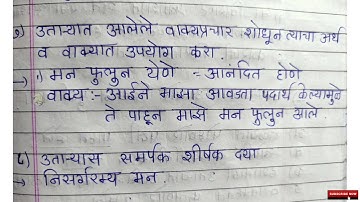 ७) उताऱ्यात आलेले वाक्यप्रचार शोधून त्याचा अर्थ
व वाक्यात उपयोग करा.
→ १) मन फुलुन येणे :- आनंदित होणे
वाक्य :- आईने माझा आवडता पदार्थ केल्यामुळे
ते पाहून माझे मन फुलुन आले.
८) उताऱ्यास समर्पक शीर्षक दया
→ निसर्गरम्य मन.
SUBSCRIBE NOW